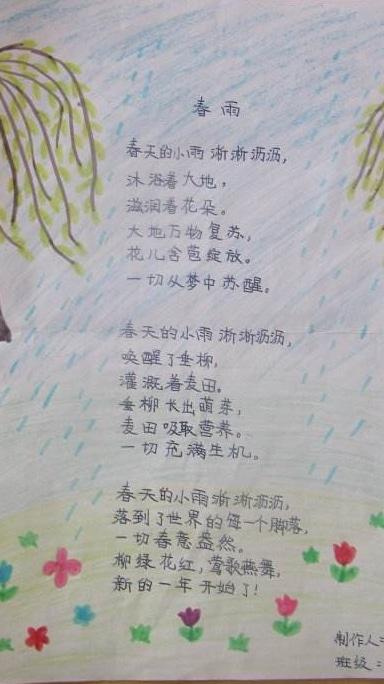 春雨
春天的小雨淅淅沥沥，
沐浴着大地，
滋润着花朵。
大地万物复苏，
花儿含苞绽放。
一切从梦中苏醒。
春天的小雨淅淅沥沥，
唤醒了垂柳，
灌溉着麦田。
垂柳长出萌芽，
麦田吸取营养。
一切充满生机。
春天的小雨淅淅沥沥，
落到了世界的每一个脚落，
一切春意盎然。
柳绿花红，莺歌燕舞，
新的一年开始了！
制作人：
班级：